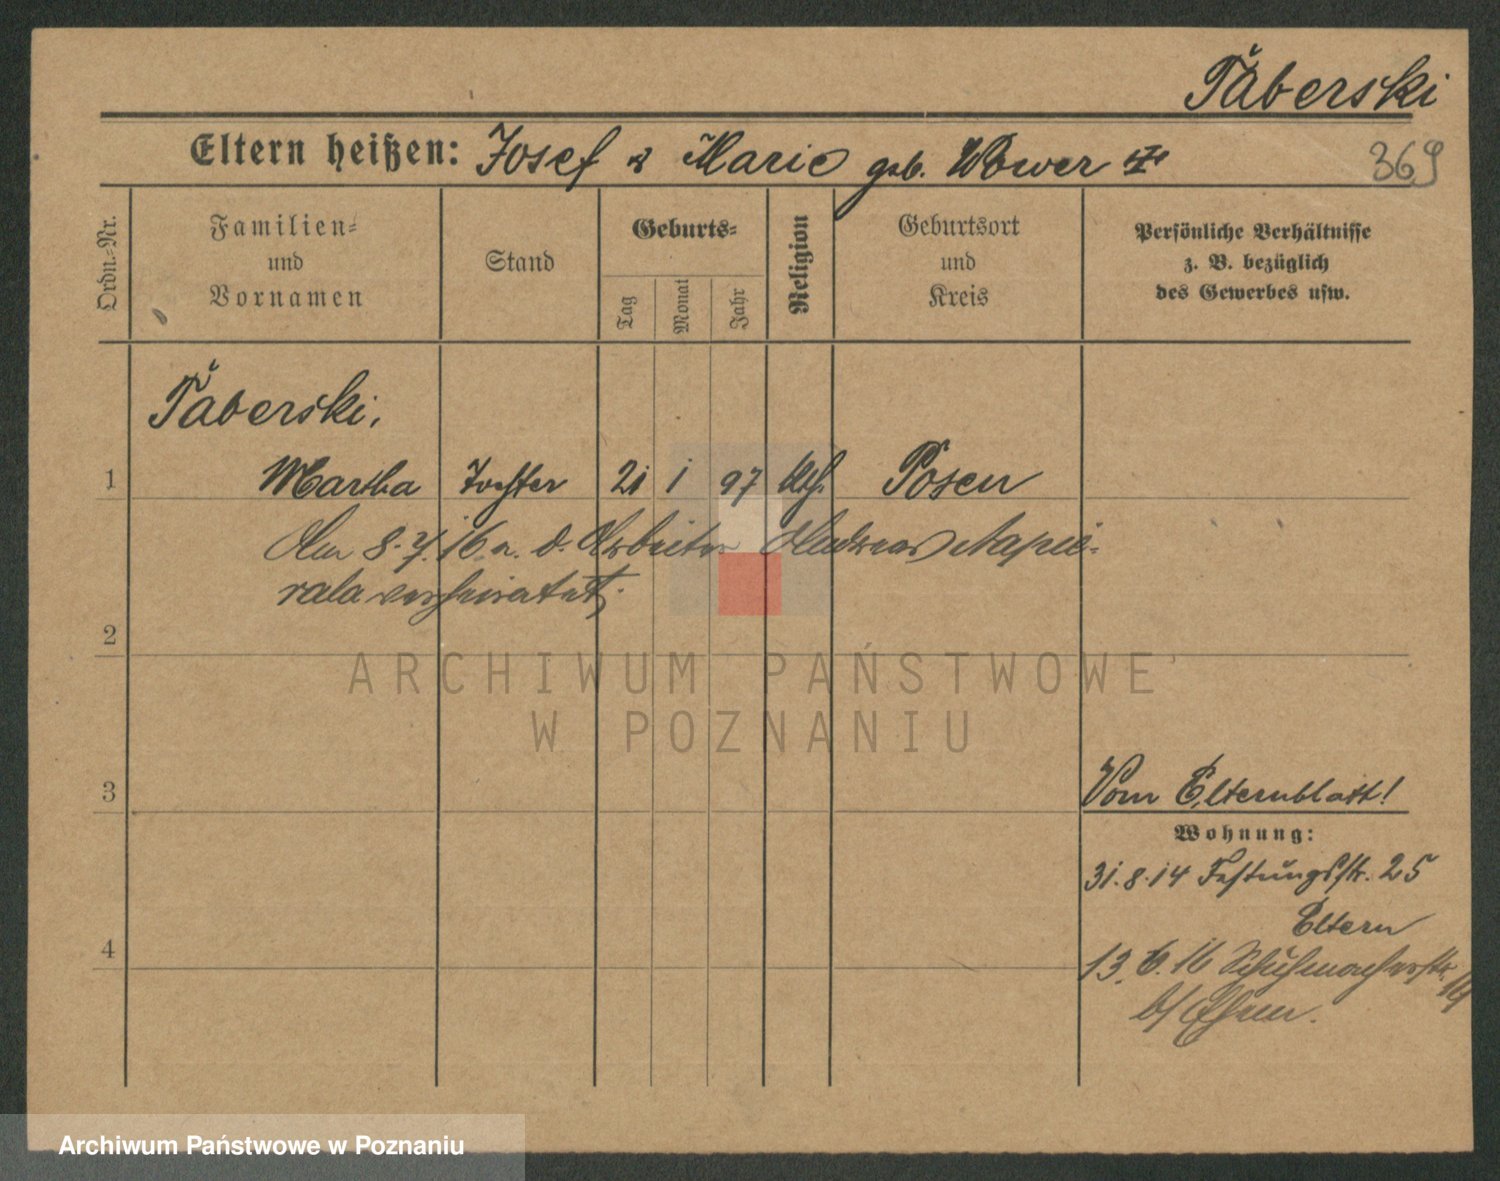 Täberski
Eltern heißen: Josef & Marie geb. Wower
369
Ordn.-Nr.
Familien-
und
Vornamen
Stand
Geburts-
Tag
Monat
Jahr
Religion
Geburtsort
und
Kreis
Persönliche Verhältnisse
z. B. bezüglich
des Gewerbes usw.
Täberski,
1 Martha Tochter 21 1 97 kth. Posen
Am 8. 7. 16 m. d. Arbeiter Andreas Napie-
rala verheiratet.
2
3
4
Vom Elternblatt!
Wohnung:
31.8.14 Festungsstr. 25
Eltern
13. 6. 16 Schuhmacherstr.
b/
ARCHIWUM PAŃSTWOWE
W POZNANIU
Archiwum Państwowe w Poznaniu